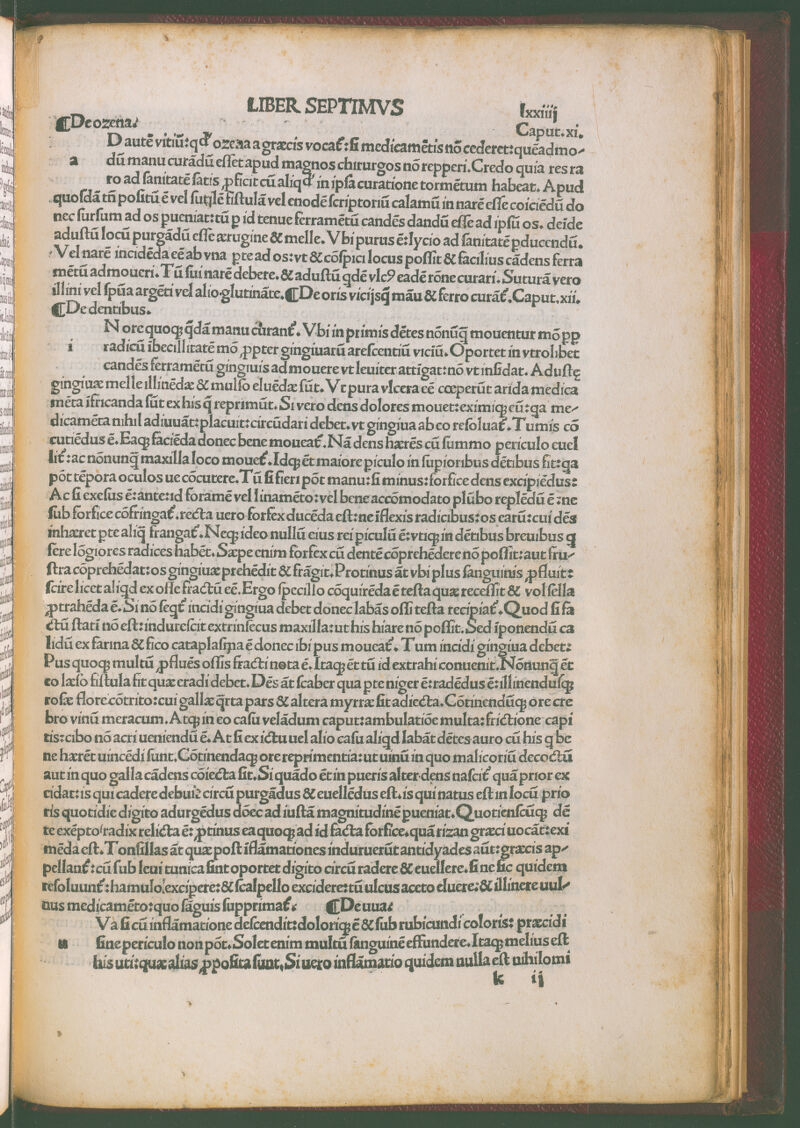 LIBER SEPTIMVS lxxiiij
¶De ozena. Caput.xi.
D autē vitiū:qđ ozena a græcis vocat̃:si medicamētis nō cederet:quēadmo-
a dū manu curādū esset apud magnos chirurgos nō repperi.Credo quia res ra
ro ad sanitatē satis ꝓficit cū aliqđ in ipsa curatione tormētum habeat. Apud
quosdā tñ positū ē vel fictile fistulā vel enodē scriptoriū calamū in narē esse coiciēdū do
nec sursum ad os pueniat:tū p id tenue ferramētū candēs dandū esse ad ipsū os. deīde
adustū locū purgādū esse ærugine & melle. Vbi purus ē:lycio ad sanitatē pducendū.
Vel narē incidēda eē ab vna pte ad os:vt & cōspici locus possit & facilius cādens ferra
mētū admoueri. Tū sui narē debere. & adustū qdē vlcꝰ eadē rōne curari. Suturā vero
illini vel spūa argēti vel alio glutināte.¶De oris vicijs q̄ māu & ferro curāt̃.Caput.xii.
¶De dentibus.
N ore quoq; q̄dā manu curant̃. Vbi in primis dētes nōnūq̄ mouentur mō pp
i radicū ībecillitatē mō ꝓpter gingiuarū arescentiū viciū. Oportet in vtrolibet
candēs ferramētū gingiuis admouere vt leuiter attigat:nō vt insidat. Adustę
gingiuæ melle illinēdæ & mulso eluēdæ sūt. Vt pura vlcera eē cœperūt arida medica
mēta īfricanda sūt ex his q̄ reprimūt. Si vero dens dolores mouet:eximiq; eū:qa me-
dicamēta nihil adiuuāt:placuit:circūdari debet.vt gingiua ab eo resoluat̃. Tum is cō
cutiēdus ē. Eaq; faciēda donec bene moueat̃. Nā dens hærēs cū summo periculo euel
lit̃:ac nōnunq̄ maxilla loco mouet̃.Idq; ēt maiore piculo in supioribus dētibus fit:qa
pōt tēpora oculos ue cōcutere. Tū si fieri pōt manu:si minus:forfice dens excipiēdus:
Ac si exesus ē:ante:id foramē vel linamēto:vel bene accōmodato plūbo replēdū ē:ne
sub forfice cōfringat̃.recta uero forfex ducēda est:ne īflexis radicibus:os earū:cui dēs
inhæret pte aliq̄ frangat̃.Neq; ideo nullū eius rei piculū ē:vtiq; in dētibus breuibus q
fere lōgiores radices habēt.Sæpe enim forfex cū dentē cōprehēdere nō possit:aut fru-
stra cōprehēdat:os gingiuæ prehēdit & frāgit.Protinus āt vbi plus sanguinis ꝓfluit:
scire licet aliqd ex osse fractū eē.Ergo specillo cōquirēda ē testa quæ recessit & volsella
ꝓtrahēda ē.Si nō seqt̃ incidi gingiua debet donec labās ossi testa recipiat̃.Quod si fa
ctū stati nō est:indurescit extrinsecus maxilla:ut his hiare nō possit.Sed īponendū ca
lidū ex farina & fico cataplasma ē donec ibi pus moueat̃. Tum incidi gingiua debet:
Pus quoq; multū ꝓfluēs ossis fracti nota ē.Itaq; ēt tū id extrahi conuenit.Nōnunq̄ ēt
eo læso fistula fit quæ eradi debet.Dēs āt scaber qua pte niger ē:radēdus ē:illinendusq;
rosæ flore cōtrito:cui gallæ q̄rta pars & altera myrræ sit adiecta.Cōtinendūq; ore cre
bro vinū meracum.Atq; in eo casu velādum caput:ambulatiōe multa:frictione capi
tis:cibo nō acri ueniendū ē.At si ex ictu uel alio casu aliqd labāt dētes auro cū his q be
ne hærēt uincēdi sunt.Cōtinendaq; ore reprimentia:ut uinū in quo malicoriū decoctū
aut in quo galla cādens cōiecta sit.Si quādo ēt in pueris alter dens nascit̃ quā prior ex
cidat:is qui cadere debuit circū purgādus & euellēdus est.is qui natus est in locū prio
ris quotidie digito adurgēdus dōec ad iustā magnitudinē pueniat.Quotienscūq; dē
te exēpto radix relicta ē:ꝓtinus ea quoq; ad id facta forfice.quā rizan græci uocāt:exi
mēda est.Tonsillas āt quæ post īflāmationes induruerūt antidyades aūt:græcis ap-
pellant̃:cū sub leui tunica sint oportet digito circū radere & euellere.si ne sic quidem
resoluunt̃:hamulo excipere:& scalpello excidere:tū ulcus aceto eluere:& illinere uul-
nus medicamēto:quo sāguis supprimat̃. ¶De uua.
Va si cū inflāmatione descendit:doloriq; ē & sub rubicundi coloris: præcidi
u sine periculo non pōt.Solet enim multū sanguinē effundere.Itaq; melius est
his uti:quæ alias ꝓposita sunt.Si uero inflāmatio quidem nulla est nihilomi
k ij